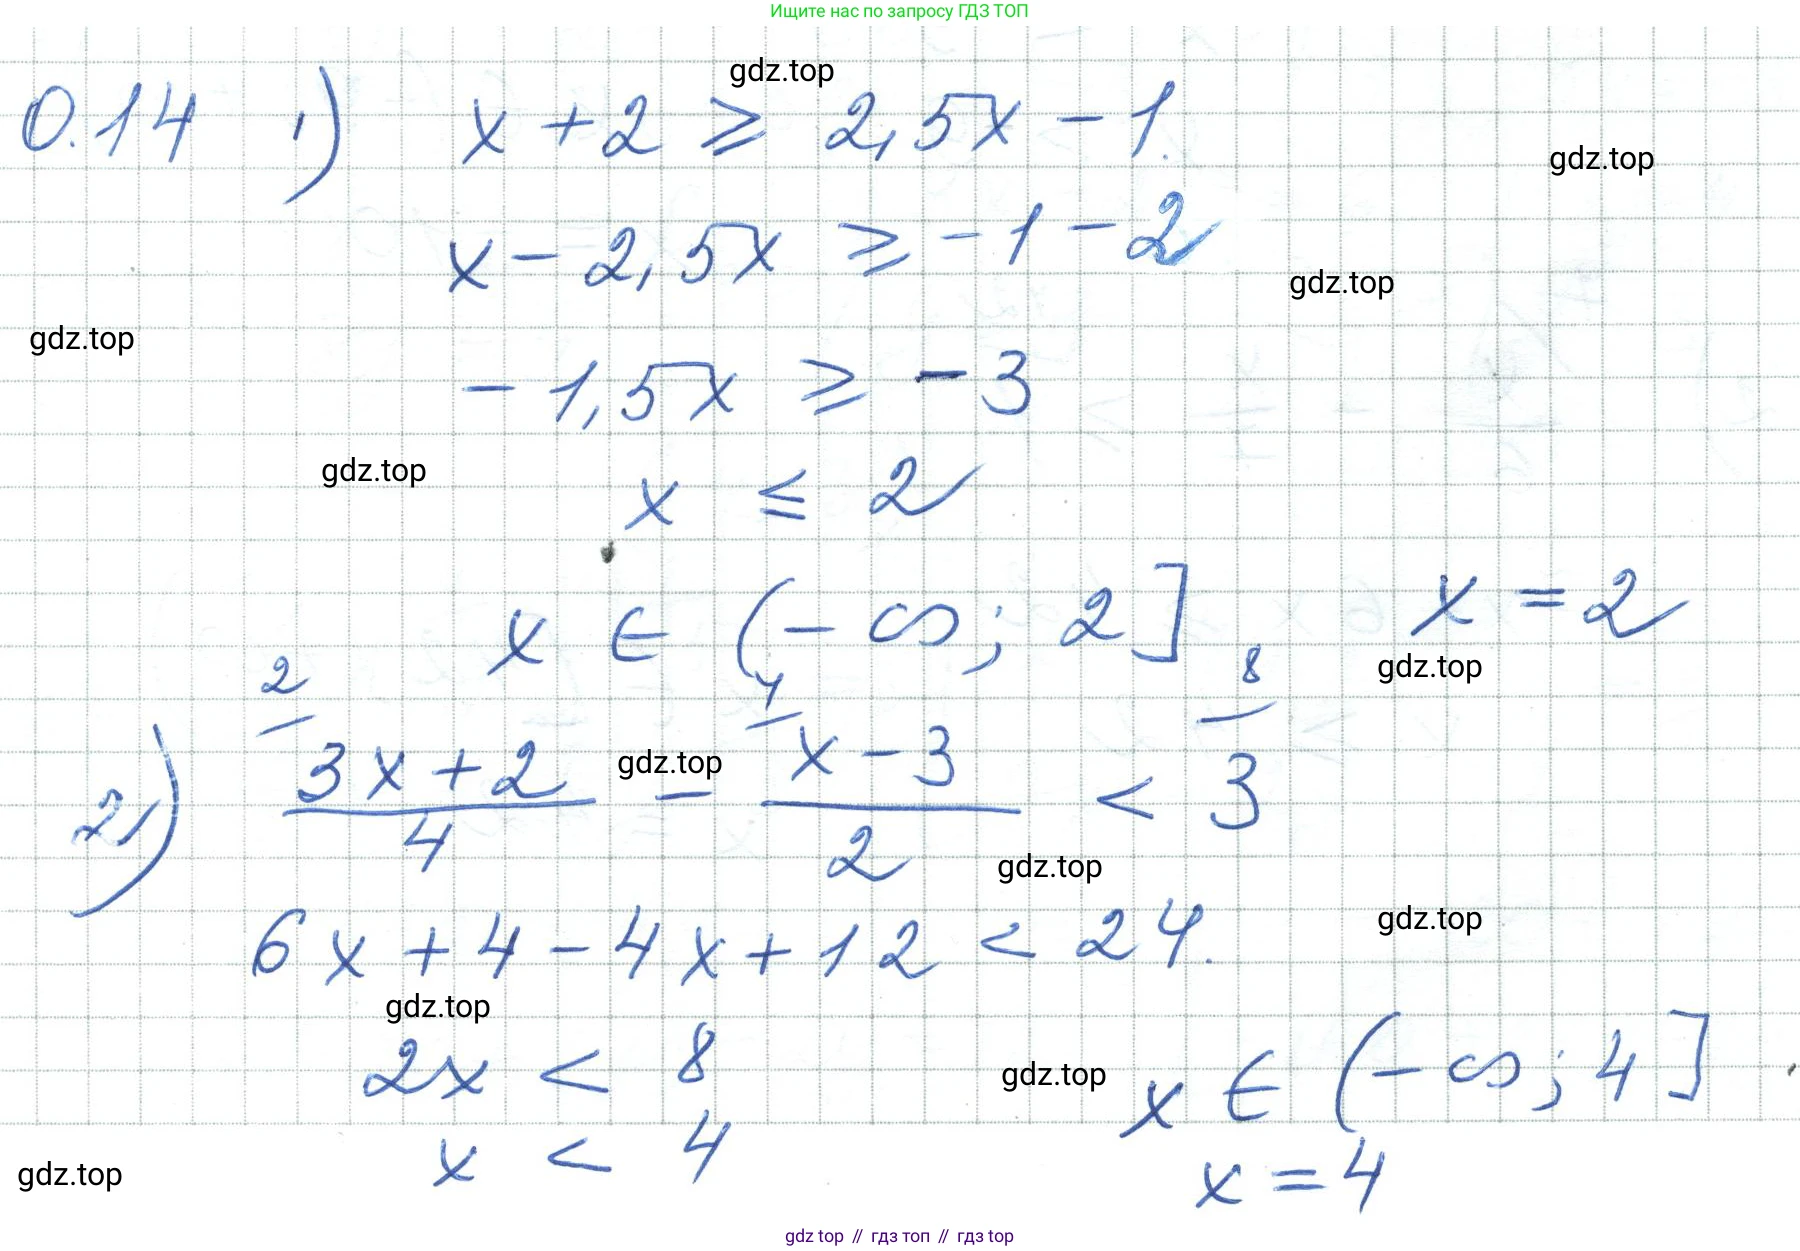 Ищите нас по запросу ГДЗ ТОП
gdz.top
0.14 1) x + 2 ⩾ 2,5x - 1.
gdz.top
x - 2,5x ⩾ -1 - 2
gdz.top
gdz.top
- 1,5x ⩾ - 3
gdz.top
x ≤ 2
x ∈ (- ∞; 2] x = 2
gdz.top
2) (3x + 2)/4 ^2 - (x - 3)/2 ^4 < 3 ^8
gdz.top
gdz.top
6x + 4 - 4x + 12 < 24.
gdz.top
gdz.top
2x < 8
gdz.top
x ∈ (- ∞; 4]
x < 4
x = 4
gdz.top
gdz top // гдз топ // gdz top